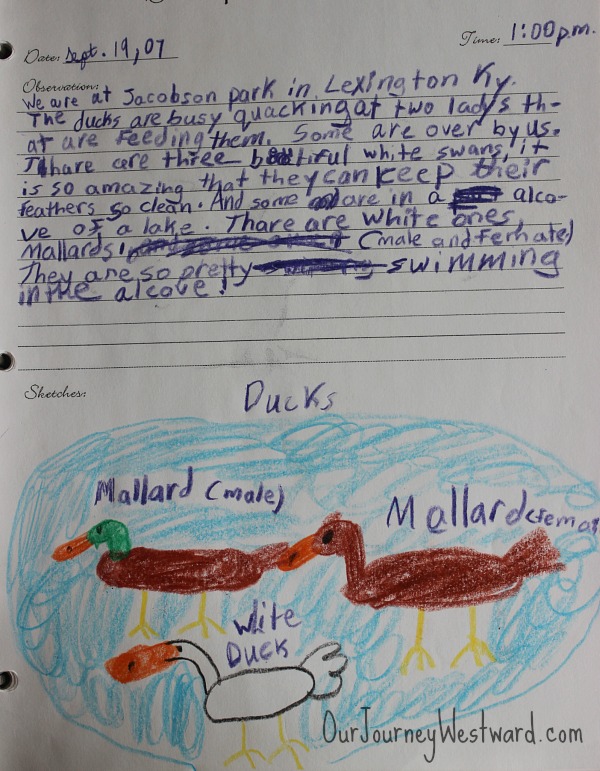 Date: Sept. 19, 07
Time: 1:00 p.m.
Observation:
We are at Jacobson park in Lexington Ky.
The ducks are busy quacking at two lady's th-
at are feeding them. Some are over by us.
Thare are three butiful white swans, it
is so amazing that they can keep their
feathers so clean. And some are in a alco-
ve of a lake. Thare are white ones,
Mallards (male and female)
They are so pretty swimming
in the alcove!
Sketches:
Ducks
Mallard (male)
Mallard (femal
White
Duck
OurJourneyWestward.com